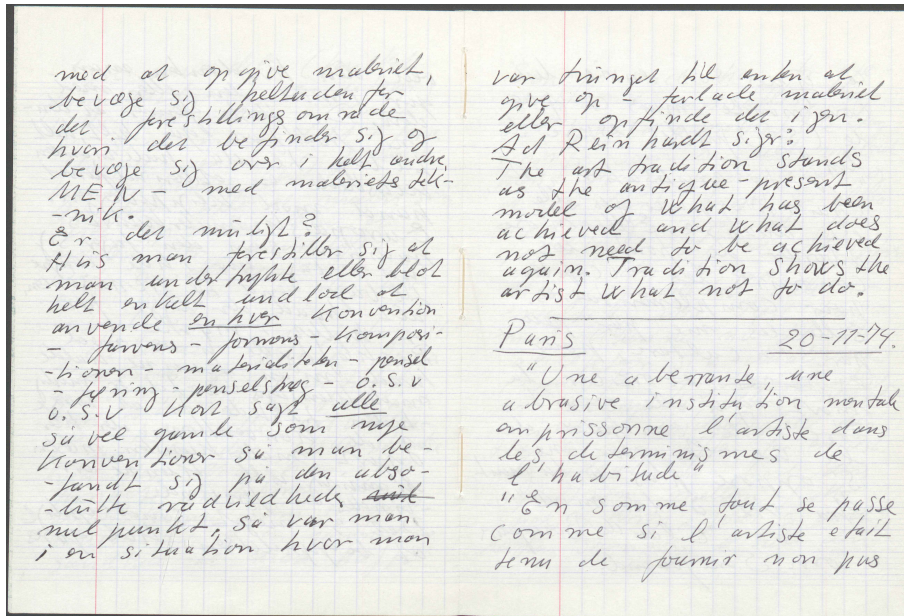 med at opgive maleriet,
bevæge sig heltudenfor
det forestillingsområde
hvori det befinder sig og
bevæge sig over i helt andre
MEN - med maleriets tek-
-nik.
Er det muligt?
Hvis man forestiller sig at
man undertrykte eller blot
helt enkelt undlod at
anvende en hver konvention
- farvens - formens - komposi-
-tionen - materialiteten - pensel
-føring - penselstrøg - o.s.v
o.s.v kort sagt alle
såvel gamle som nye
konventioner så man be-
-fandt sig på den abso-
-lutte rådvildheds
nulpunkt, så var man
i en situation hvor man
var tvunget til enten at
give op - forlade maleriet
eller opfinde det igen.
Ad Reinhardt siger:
The art tradition stands
as the antique-present
model of what has been
achieved and what does
not need to be achieved
again. Tradition shows the
artist what not to do.
Paris 20-11-74.
"Une aberrante, une
abrasive institution mentale
emprissonne l'artiste dans
les determinismes de
l'habitude"
"En somme tout se passe
comme si l'artiste etait
tenu de fournir non pas